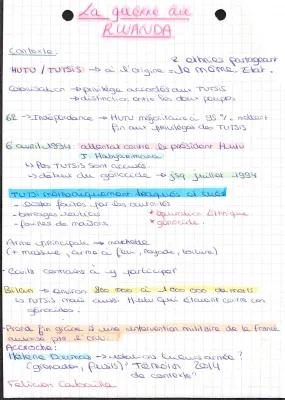 La guerre au
RWANDA
Contexte:
2 ethnies partageant
HUTU / TUTSIS → à l'origine → le même Etat.
Colonisation → privilège accordés aux TUTSIS
→ distinction entre les deux peuples
62 → Indépendance → HUTU majoritaire à 95 %. mettent
fin aux privilèges des TUTSIS
6 avril 1994 attentat contre le président HUTU
J. Habyarimana
↳ Des TUTSIS sont accusés.
→ début du génocide → jsq juillet 1994
TUTSI méthodiquement traqués et tués
- listes faites par les autorités
- barrages routiers * épuration Ethnique
- fouilles de maisons * génocide.
Arme principale → machette
(+ massue, arme à feu, noyade, torture)
- Civils contraints à y participer
Bilan → environ 800 000 à 1 000 000 de morts
↳ TUTSIS mais aussi HUTU qui étaient contre ce
génocide.
- Prend fin grâce à une intervention militaire de la France
autorisé par l'ONU.
Accroche:
Hélène Dumas → armée ?
(grenades, fusils) Témoin 2014
de contexte?
Félicien